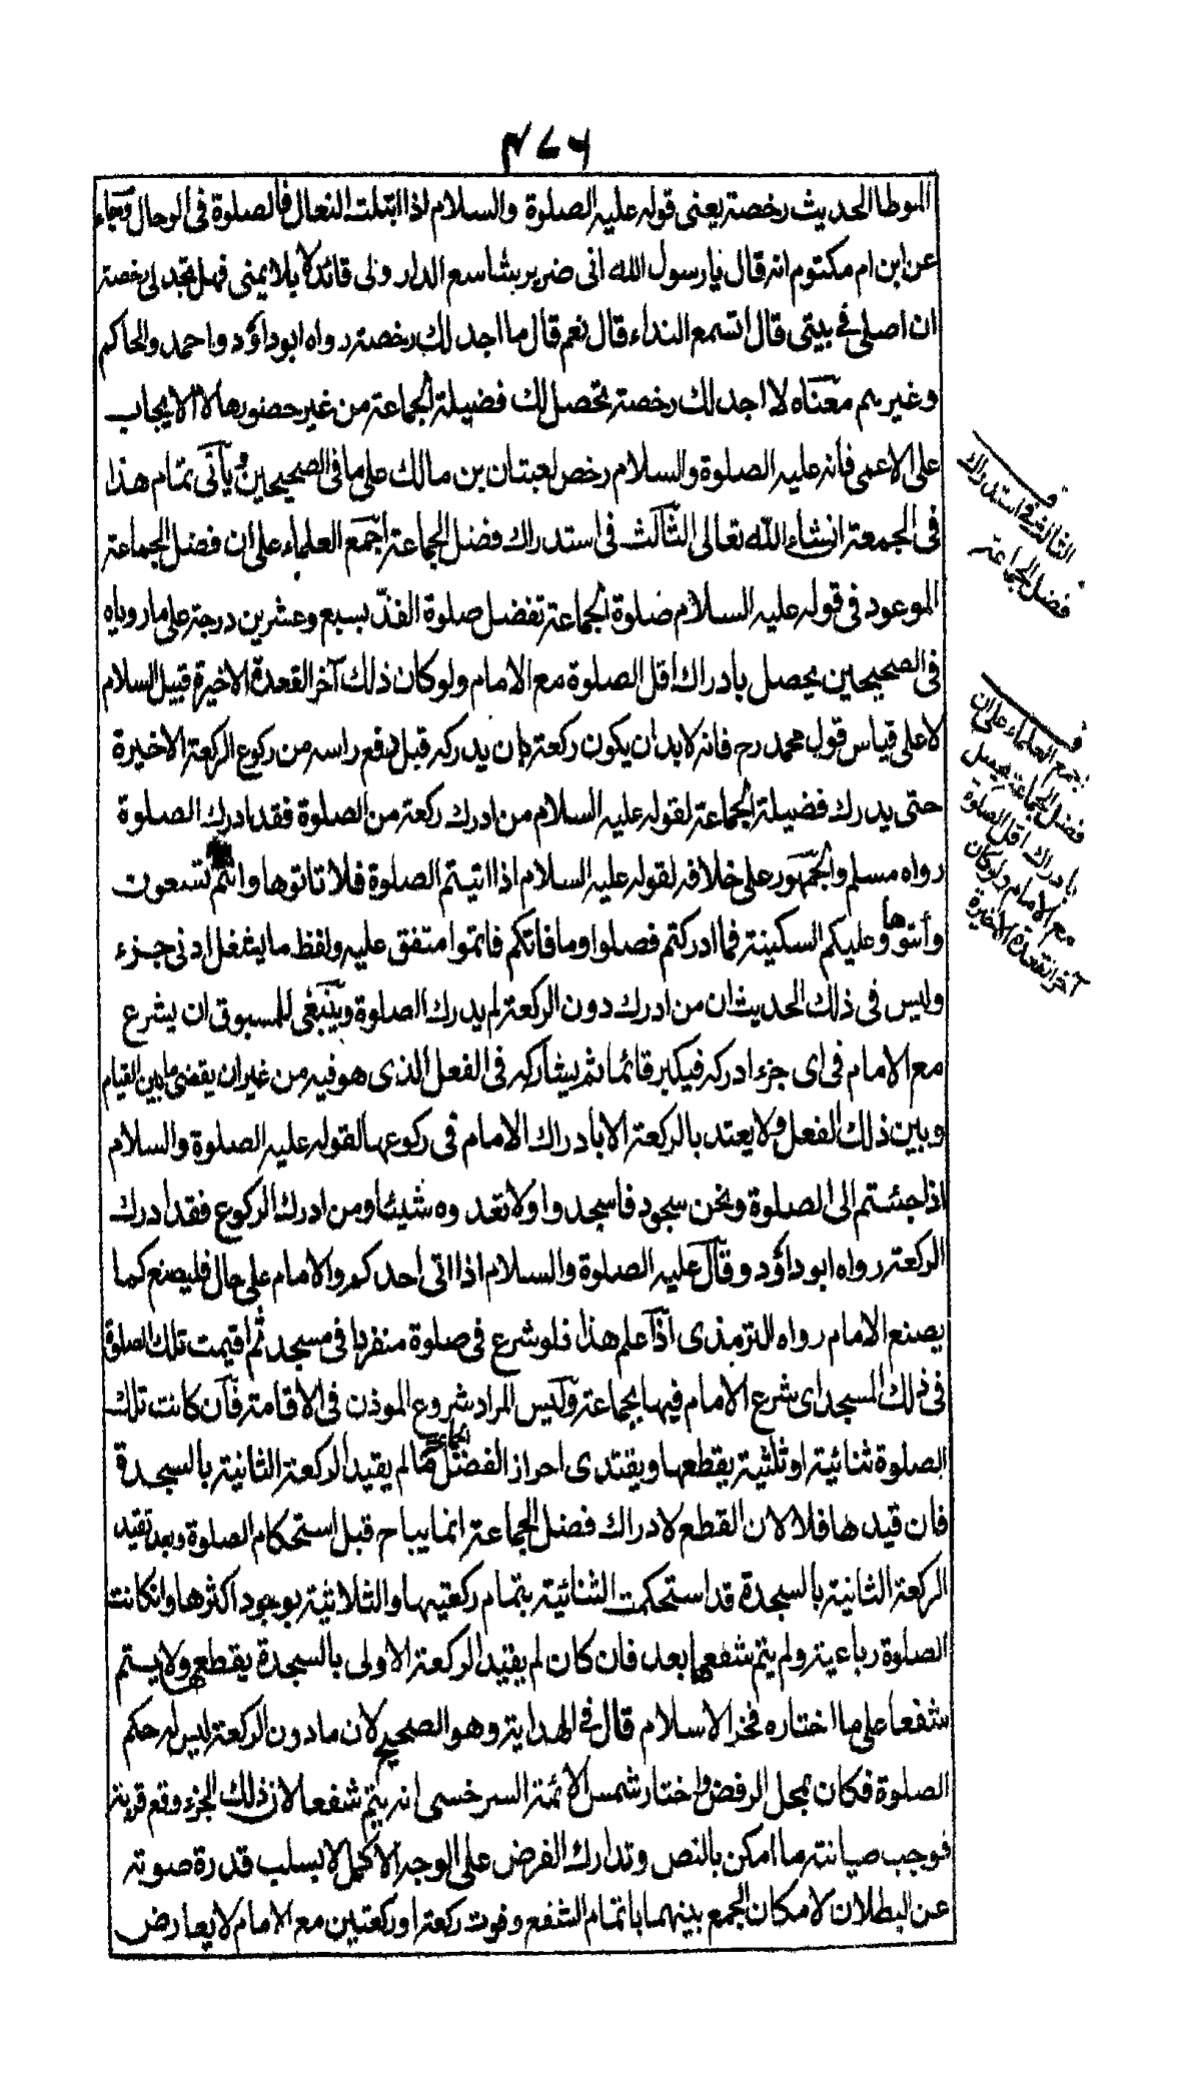 ٤٧٦
الموطا الحديث رخصة يعنى قوله عليه الصلوة والسلام اذا ابتلت النعال فالصلوة فى الرحال وجاء
عن ابن ام مكتوم انه قال يا رسول الله انى ضرير شاسع الدار ولى قائد لا يلايمنى فهل تجد لى رخصة
ان اصلى فى بيتى قال اتسمع النداء قال نعم قال ما اجد لك رخصة رواه ابو داؤد واحمد والحاكم
وغيرهم معناه لا اجد لك رخصة تحصل لك فضيلة الجماعة من غير حضورها لا الايجاب
على الاعمى فانه عليه الصلوة والسلام رخص لعبتان بن مالك على ما فى الصحيحين ويأتى تمام هذا
فى الجمعة انشاء الله تعالى الثالث فى استدراك فضل الجماعة اجمع العلماء على ان فضل الجماعة
الموعود فى قوله عليه السلام صلوة الجماعة تفضل صلوة الفذ بسبع وعشرين درجة على ما روياه
فى الصحيحين يحصل بادراك اقل الصلوة مع الامام ولو كان ذلك آخر القعدة الاخيرة قبيل السلام
لا على قياس قول محمد رح فانه لابد ان يكون ركعة بان يدركه قبل رفع راسه من ركوع الركعة الاخيرة
حتى يدرك فضيلة الجماعة لقوله عليه السلام من ادرك ركعة من الصلوة فقد ادرك الصلوة
رواه مسلم والجمهور على خلافه لقوله عليه السلام اذا اتيتم الصلوة فلا تاتوها وانتم تسعون
وأتوها وعليكم السكينة فما ادركتم فصلوا وما فاتكم فاتموا متفق عليه ولفظ ما يشغل ادنى جزء
وليس فى ذلك الحديث ان من ادرك دون الركعة لم يدرك الصلوة وينبغى للمسبوق ان يشرع
مع الامام فى اى جزء ادركه فيكبر قائما ثم يشاركه فى الفعل الذى هو فيه من غير ان يقضى ما بين القيام
وبين ذلك الفعل ولا يعتد بالركعة الا بادراك الامام فى ركوعها لقوله عليه الصلوة والسلام
اذا جئتم الى الصلوة ونحن سجود فاسجدوا ولا تعدوه شيئا ومن ادرك الركوع فقد ادرك
الركعة رواه ابو داؤد وقال عليه الصلوة والسلام اذا اتى احدكم والامام على حال فليصنع كما
يصنع الامام رواه الترمذى اذا علم هذا فلو شرع فى صلوة منفردا فى مسجد ثم اقيمت تلك الصلوة
فى ذلك المسجد اى شرع الامام فيها بجماعة وليس المراد شروع الموذن فى الاقامة فان كانت تلك
الصلوة ثنائية او ثلثية يقطعها ويقتدى احراز الفضل الجماعة ما لم يقيد الركعة الثانية بالسجدة
فان قيدها فلا لان القطع لادراك فضل الجماعة انما يباح قبل استحكام الصلوة وبعد تقييد
الركعة الثانية بالسجدة قد استحكمت الثنائية بتمام ركعتيها والثلاثية بوجود اكثرها وانكانت
الصلوة رباعية ولم يتم شفعها بعد فان كان لم يقيد الركعة الاولى بالسجدة يقطع ولا يستتم
شفعا على ما اختاره فخر الاسلام قال فى الهداية وهو الصحيح لان ما دون الركعة ليس له حكم
الصلوة فكان بمحل الرفض واختار شمس الائمة السرخسى انه يتم شفعا لان ذلك الجزء وقع قربة
فوجب صيانته ما امكن بالنص وتدارك الفرض على الوجه الاكمل لا يسلب قدرة صونه
عن البطلان لامكان الجمع بينهما باتمام الشفع وفوت ركعة او ركعتين مع الامام لا يعارض
ف
الثالث فى استدراك
فضل الجماعة
ف
اجمع العلماء على ان
فضل الجماعة يحصل
بادراك اقل الصلوة
مع الامام ولو كان
آخر القعدة الاخيرة